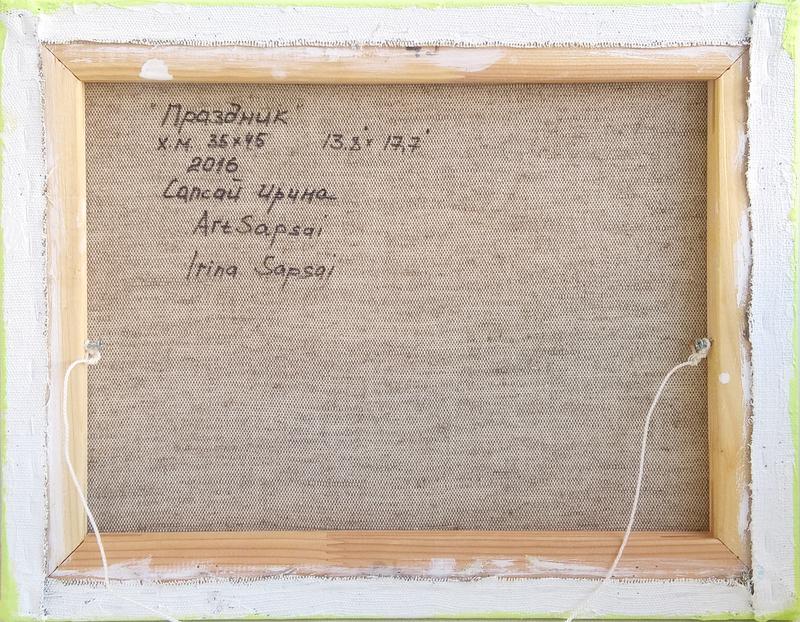 "Праздник"
х.м. 35x45 13.8" x 17,7"
2016
Сапсай Ирина
ArtSapsai
Irina Sapsai